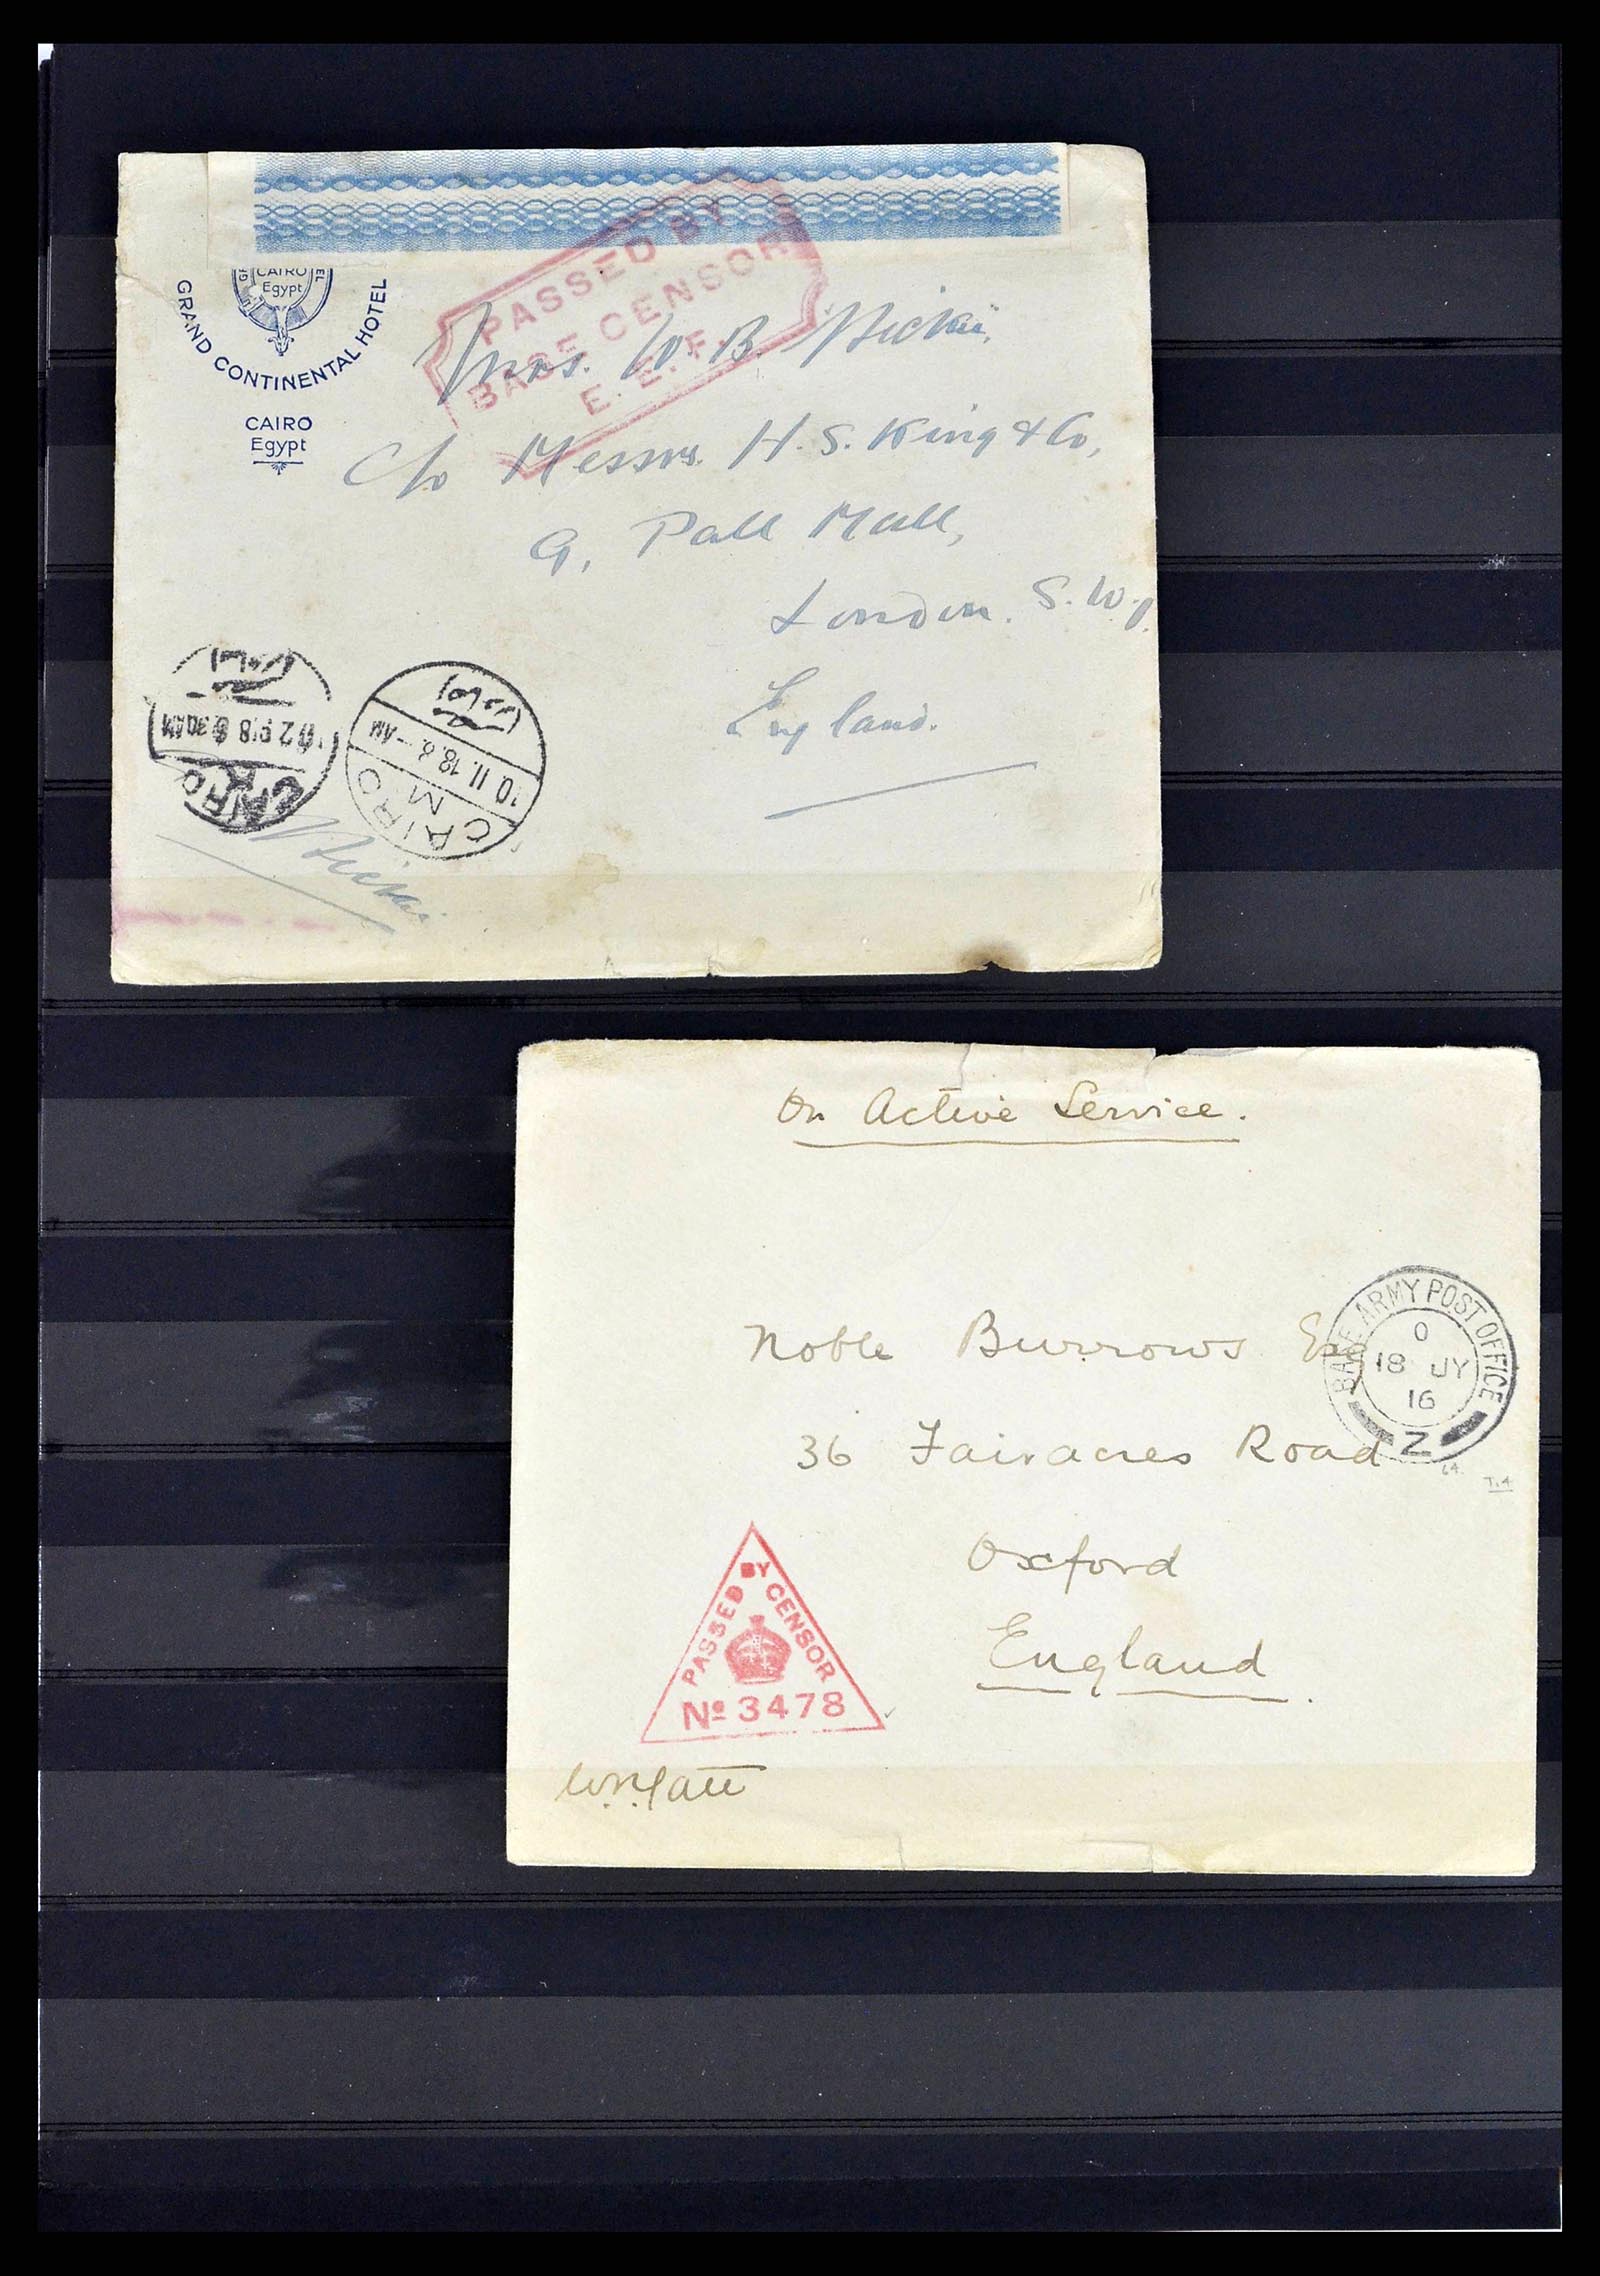 PASSED BY
BASE CENSOR
E. E. F.
CAIRO
Egypt
GRAND CONTINENTAL HOTEL
CAIRO
Egypt
Mrs. W. B.
c/o Messrs. H. S. King & Co,
9, Pall Mall,
London. S.W.1
England.
CAIRO
30 AM
CAIRO
M
10.11.18.8.-AM
On Active Service.
BASE ARMY POST OFFICE
O
18 JY
16
Z
Noble Burrows Esq
36 Fairacres Road
64.
T.4
Oxford
England.
PASSED BY CENSOR
No 3478